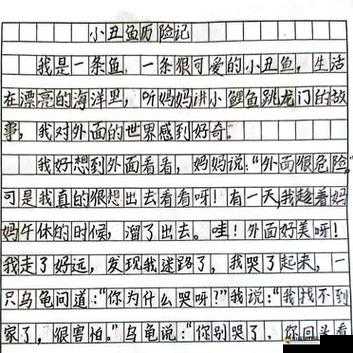 小丑鱼历险记
我是一条鱼，一条很可爱的小丑鱼，生活
在漂亮的海洋里，听妈妈讲小鲤鱼跳龙门的故
事，我对外面的世界感到好奇。
我好想到外面看看，妈妈说：“外面很危险。”
可是我真的很想出去看看呀！有一天，我趁着妈
妈午休的时候，溜了出去。哇！外面好美呀！
我走了好远，发现我迷路了，我哭了起来，一
只乌龟问道：“你为什么哭呀？”我说：“我找不到
家了，很害怕。”乌龟说：“你别哭了，你回头看